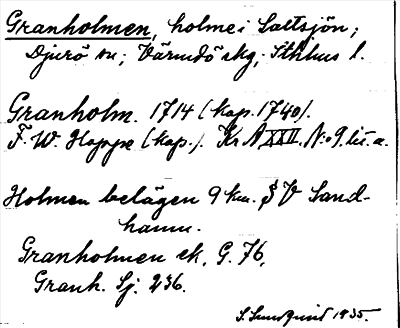 Granholmen, holme i Saltsjön;
Djurö sn; Värmdö skg; Sthlms l.
Granholm. 1714 (kop. 1740).
F. W. Hoppe (kop.). Kr A XXII. N:o 9. lit. a.
Holmen belägen 9 km. S V Sand-
hamn.
Granholmen ek. G. 76,
Granh. Sj. 236.
S. Sundquist 1935.